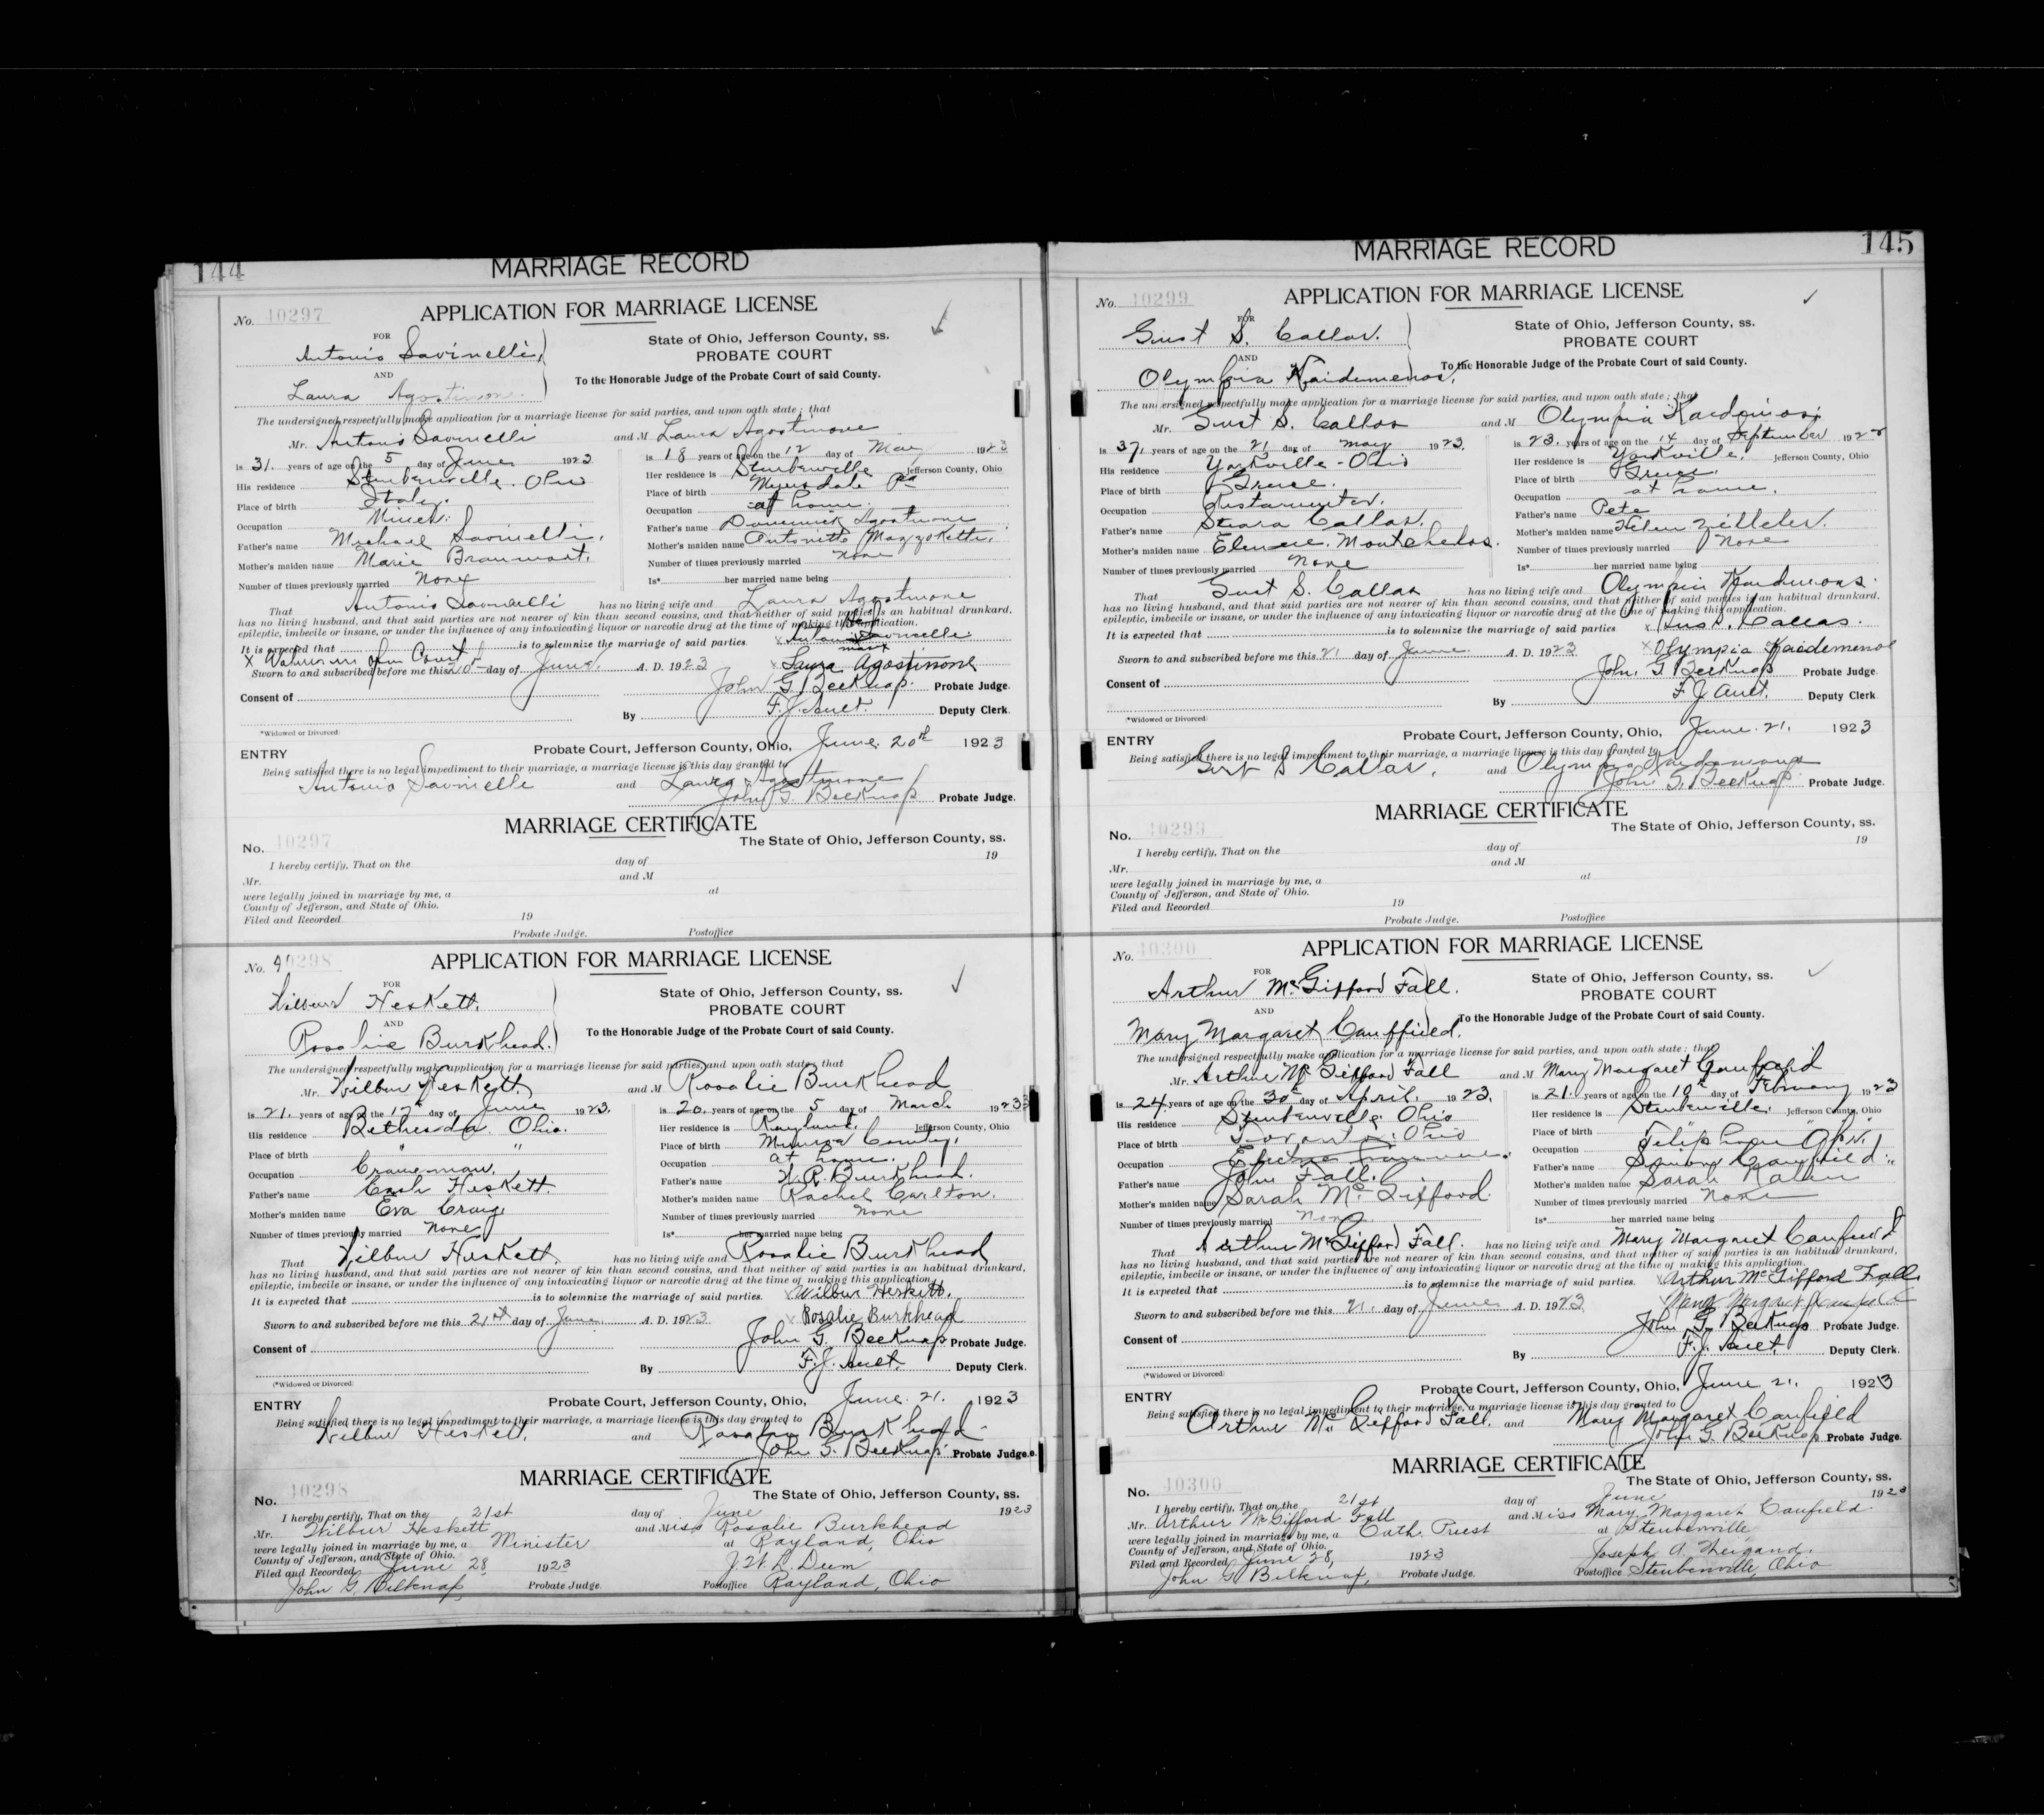 144
MARRIAGE RECORD
No. 40297
APPLICATION FOR MARRIAGE LICENSE
FOR
Antonio Savinelli,
AND
Laura Agostinone
State of Ohio, Jefferson County, ss.
PROBATE COURT
To the Honorable Judge of the Probate Court of said County.
The undersigned respectfully make application for a marriage license for said parties, and upon oath state; that
Mr. Antonio Savinelli and M Laura Agostinone
is 31. years of age on the 5 day of June 1923
His residence Steubenville. Ohio
Place of birth Italy.
Occupation Miner.
Father's name Michael Savinelli.
Mother's maiden name Marie
Number of times previously married None
is 18 years of age on the 12 day of May 1923
Her residence is Steubenville Jefferson County, Ohio
Place of birth Meyersdale Pa
Occupation at home
Father's name Domenick Agostinone
Mother's maiden name Antonitte
Number of times previously married None
Is* her married name being
That Antonio Savinelli has no living wife and Laura Agostinone
has no living husband, and that said parties are not nearer of kin than second cousins, and that neither of said parties is an habitual drunkard,
epileptic, imbecile or insane, or under the influence of any intoxicating liquor or narcotic drug at the time of making this application.
It is expected that is to solemnize the marriage of said parties. x Antonio Savinelle
mark
Sworn to and subscribed before me this 20 day of June A. D. 1923 x Laura Agostinone
Consent of John G. Belknap. Probate Judge.
By F. J. Ault. Deputy Clerk.
(*Widowed or Divorced)
ENTRY Probate Court, Jefferson County, Ohio, June. 20th 1923
Being satisfied there is no legal impediment to their marriage, a marriage license is this day granted to
Antonio Savinelle and Laura Agostinone
John G. Belknap Probate Judge.
MARRIAGE CERTIFICATE
No. 40297 The State of Ohio, Jefferson County, ss.
I hereby certify, That on the day of 19
Mr. and M
were legally joined in marriage by me, a at
County of Jefferson, and State of Ohio.
Filed and Recorded 19
Probate Judge. Postoffice
No. 40298
APPLICATION FOR MARRIAGE LICENSE
FOR
Wilbur Heskett.
AND
Rosalie Burkhead.
State of Ohio, Jefferson County, ss.
PROBATE COURT
To the Honorable Judge of the Probate Court of said County.
The undersigned respectfully make application for a marriage license for said parties, and upon oath state; that
Mr. Wilbur Heskett and M Rosalie Burkhead
is 21. years of age on the 12 day of June 1923.
His residence Bethesda. Ohio.
Place of birth " "
Occupation Craneman.
Father's name Heskett.
Mother's maiden name Eva Craig
Number of times previously married None
is 20. years of age on the 5 day of March 1923
Her residence is Rayland. Jefferson County, Ohio
Place of birth Monroe County.
Occupation at home.
Father's name Burkhead.
Mother's maiden name Rachel Carlton.
Number of times previously married None
Is* her married name being
That Wilbur Heskett. has no living wife and Rosalie Burkhead
has no living husband, and that said parties are not nearer of kin than second cousins, and that neither of said parties is an habitual drunkard,
epileptic, imbecile or insane, or under the influence of any intoxicating liquor or narcotic drug at the time of making this application.
It is expected that is to solemnize the marriage of said parties. x Wilbur Heskett.
Sworn to and subscribed before me this 21st day of June. A. D. 1923 x Rosalie Burkhead
Consent of John G. Belknap Probate Judge.
By F. J. Ault Deputy Clerk.
(*Widowed or Divorced)
ENTRY Probate Court, Jefferson County, Ohio, June. 21. 1923
Being satisfied there is no legal impediment to their marriage, a marriage license is this day granted to
Wilbur Heskett. and Rosalie Burkhead
John G. Belknap Probate Judge.
MARRIAGE CERTIFICATE
No. 40298 The State of Ohio, Jefferson County, ss.
I hereby certify, That on the 21st day of June 1923
Mr. Wilbur Heskett and Miss Rosalie Burkhead
were legally joined in marriage by me, a Minister at Rayland, Ohio
County of Jefferson, and State of Ohio.
Filed and Recorded June 28 1923 Deem
John G. Belknap, Probate Judge. Postoffice Rayland, Ohio
MARRIAGE RECORD
145
No. 40299
APPLICATION FOR MARRIAGE LICENSE
FOR
Gust S. Callas.
AND
Olympia Kaidemenos,
State of Ohio, Jefferson County, ss.
PROBATE COURT
To the Honorable Judge of the Probate Court of said County.
The undersigned respectfully make application for a marriage license for said parties, and upon oath state; that
Mr. Gust S. Callas and M Olympia
is 37, years of age on the 21 day of May 1923.
His residence Yorkville - Ohio
Place of birth Greece.
Occupation
Father's name Callas.
Mother's maiden name
Number of times previously married None
is 23. years of age on the 14 day of September 1922
Her residence is Yorkville. Jefferson County, Ohio
Place of birth Greece.
Occupation at home.
Father's name Pete
Mother's maiden name Helen
Number of times previously married None
Is* her married name being
That Gust S. Callas has no living wife and Olympia
has no living husband, and that said parties are not nearer of kin than second cousins, and that neither of said parties is an habitual drunkard,
epileptic, imbecile or insane, or under the influence of any intoxicating liquor or narcotic drug at the time of making this application.
It is expected that is to solemnize the marriage of said parties x Gus S. Callas.
Sworn to and subscribed before me this 21 day of June A. D. 1923 x Olympia Kaidemenos
Consent of John. G Belknap Probate Judge.
By F J Ault. Deputy Clerk.
(*Widowed or Divorced)
ENTRY Probate Court, Jefferson County, Ohio, June. 21. 1923
Being satisfied there is no legal impediment to their marriage, a marriage license is this day granted to
Gust S Callas, and Olympia
John G. Belknap. Probate Judge.
MARRIAGE CERTIFICATE
No. 40299 The State of Ohio, Jefferson County, ss.
I hereby certify, That on the day of 19
Mr. and M
were legally joined in marriage by me, a at
County of Jefferson, and State of Ohio.
Filed and Recorded 19
Probate Judge. Postoffice
No. 40300
APPLICATION FOR MARRIAGE LICENSE
FOR
Arthur McGifford Fall.
AND
Mary Margaret Cauffield.
State of Ohio, Jefferson County, ss.
PROBATE COURT
To the Honorable Judge of the Probate Court of said County.
The undersigned respectfully make application for a marriage license for said parties, and upon oath state; that
Mr. Arthur McGifford Fall and M Mary Margaret Caufield
is 24 years of age on the 30th day of April. 1923.
His residence Steubenville. Ohio
Place of birth Toronto. Ohio
Occupation
Father's name John Fall.
Mother's maiden name Sarah McGifford.
Number of times previously married None
is 21. years of age on the 10th day of February 1923
Her residence is Steubenville. Jefferson County, Ohio
Place of birth "
Occupation Telephone Opr.
Father's name Caufield
Mother's maiden name Sarah
Number of times previously married None
Is* her married name being
That Arthur McGifford Fall. has no living wife and Mary Margaret Caufield
has no living husband, and that said parties are not nearer of kin than second cousins, and that neither of said parties is an habitual drunkard,
epileptic, imbecile or insane, or under the influence of any intoxicating liquor or narcotic drug at the time of making this application.
It is expected that is to solemnize the marriage of said parties. x Arthur McGifford Fall.
Sworn to and subscribed before me this 21. day of June A. D. 1923 x Mary Margaret Caufield
Consent of John G. Belknap Probate Judge.
By F. J. Ault Deputy Clerk.
(*Widowed or Divorced)
ENTRY Probate Court, Jefferson County, Ohio, June 21. 1923
Being satisfied there is no legal impediment to their marriage, a marriage license is this day granted to
Arthur Mc Gifford Fall. and Mary Margaret Caufield
John G. Belknap Probate Judge.
MARRIAGE CERTIFICATE
No. 40300 The State of Ohio, Jefferson County, ss.
I hereby certify, That on the 21st day of June 1923
Mr. Arthur McGifford Fall and Miss Mary Margaret Caufield.
were legally joined in marriage by me, a Cath. Priest at Steubenville
County of Jefferson, and State of Ohio.
Filed and Recorded June 28, 1923 Joseph A. Weigand.
John G. Belknap, Probate Judge. Postoffice Steubenville, Ohio